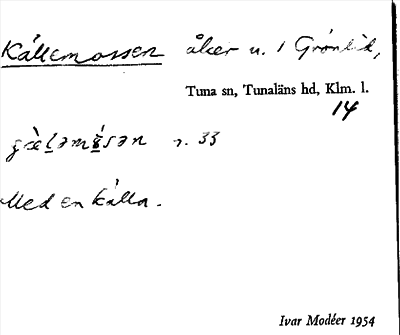 Källemossen åker u. 1 Grönlid,
Tuna sn, Tunaläns hd, Klm. l.
14
r. 33
Med en källa.
Ivar Modéer 1954